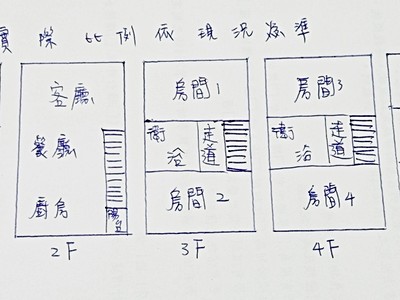 實際比例依現況為準
客廳
餐廳
廚房
陽台
2F
房間1
衛浴
走道
房間2
3F
房間3
衛浴
走道
房間4
4F